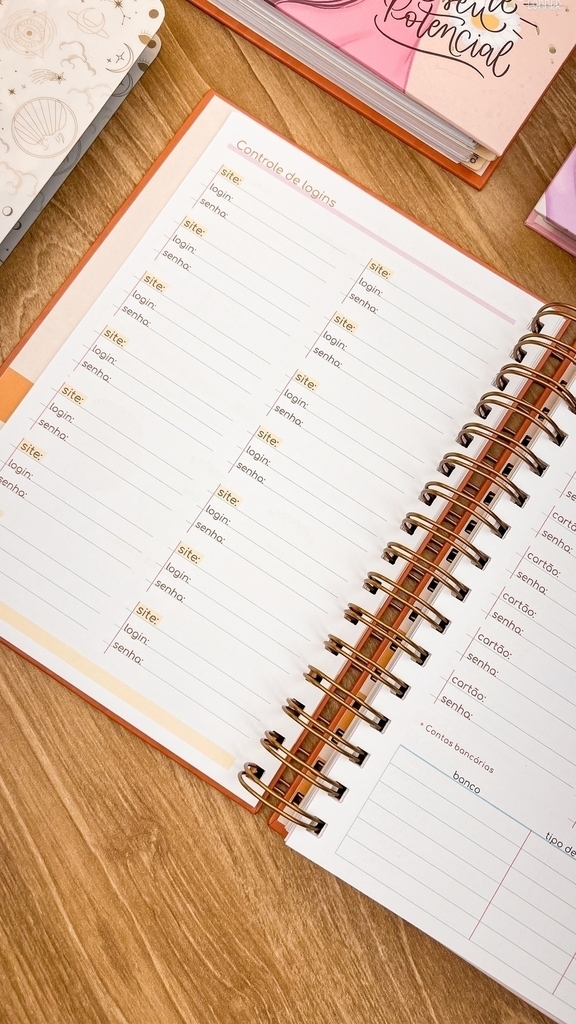 Potencial
Controle de logins
site:
login:
senha:
site:
login:
senha:
site:
login:
senha:
site:
login:
senha:
site:
login:
senha:
site:
login:
senha:
site:
login:
senha:
site:
login:
senha:
site:
login:
senha:
site:
login:
senha:
site:
login:
senha:
site:
login:
senha:
site:
login:
senha:
se
cartã
senha:
cartão:
senha:
cartão:
senha:
cartão:
senha:
cartão:
senha:
* Contas bancárias
banco
tipo de